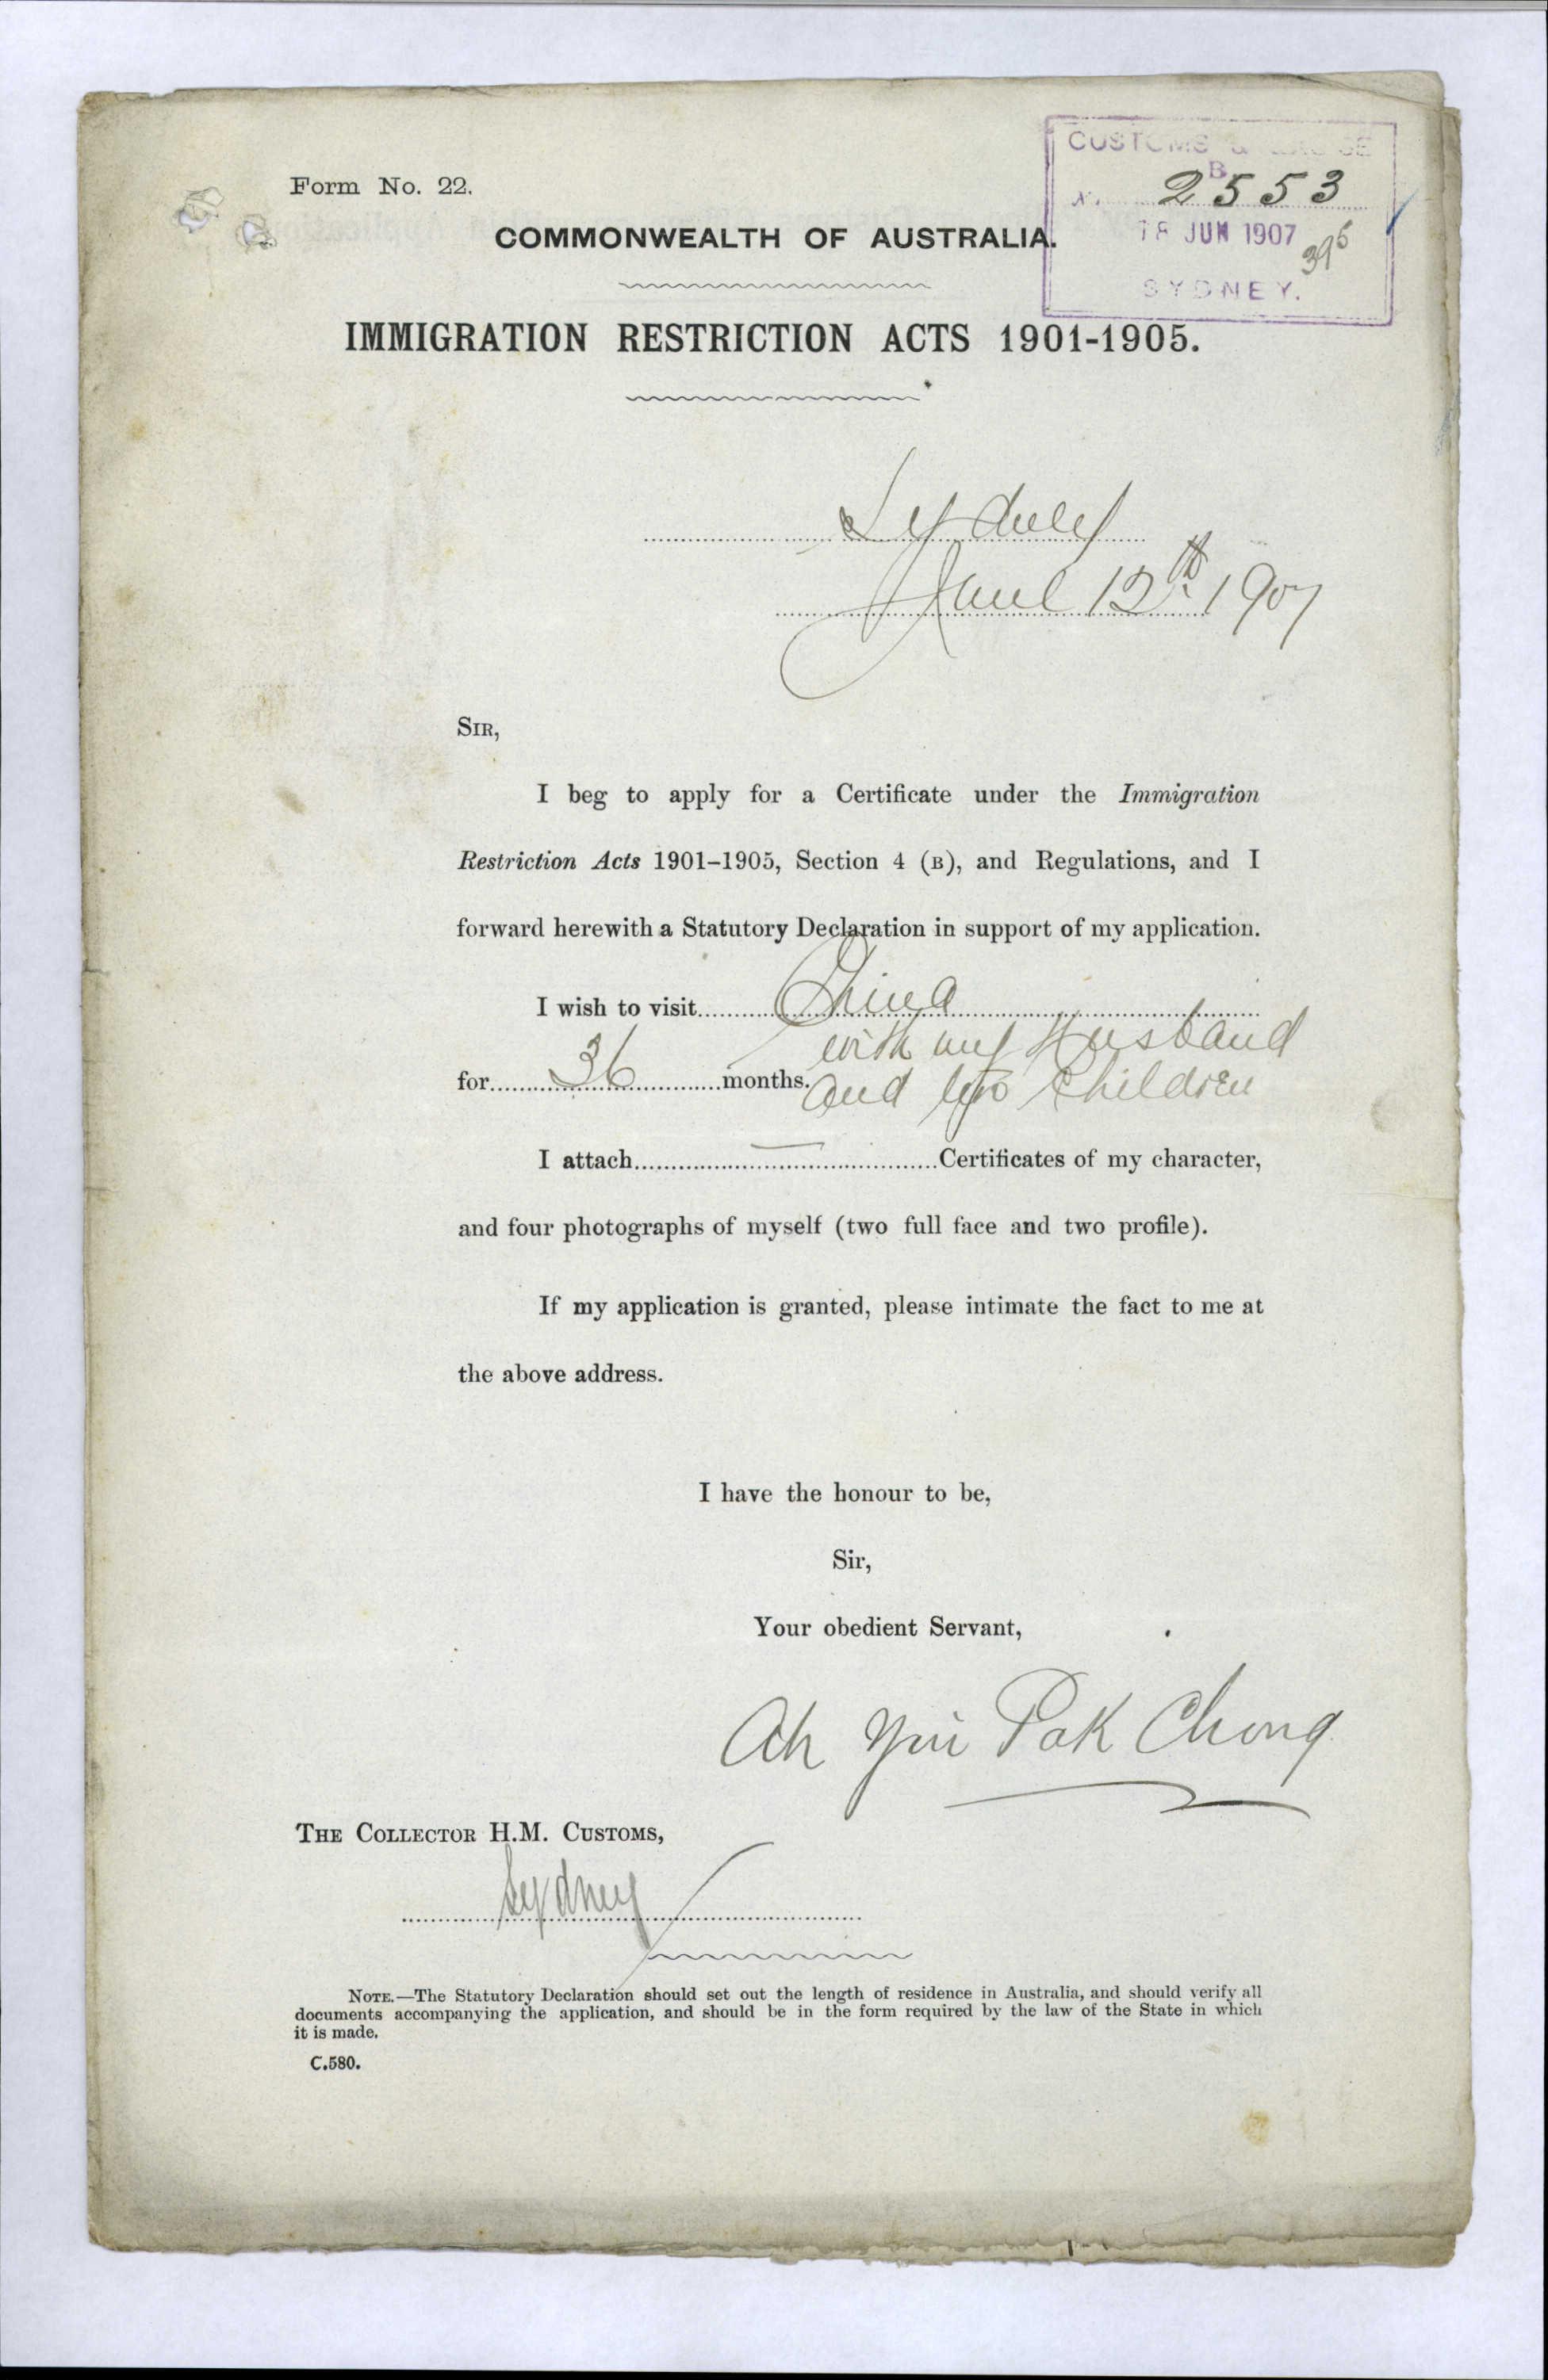 CUSTOMS &
B
No. 2553
18 JUN 1907
395
SYDNEY.
Form No. 22.
COMMONWEALTH OF AUSTRALIA.
IMMIGRATION RESTRICTION ACTS 1901-1905.
Sydney
June 12th 1907
SIR,
I beg to apply for a Certificate under the Immigration
Restriction Acts 1901–1905, Section 4 (B), and Regulations, and I
forward herewith a Statutory Declaration in support of my application.
I wish to visit China
with my Husband
for 36 months. and two Children
I attach — Certificates of my character,
and four photographs of myself (two full face and two profile).
If my application is granted, please intimate the fact to me at
the above address.
I have the honour to be,
Sir,
Your obedient Servant,
Ah Yin Pak Chong
THE COLLECTOR H.M. CUSTOMS,
Sydney
NOTE.—The Statutory Declaration should set out the length of residence in Australia, and should verify all
documents accompanying the application, and should be in the form required by the law of the State in which
it is made.
C.580.